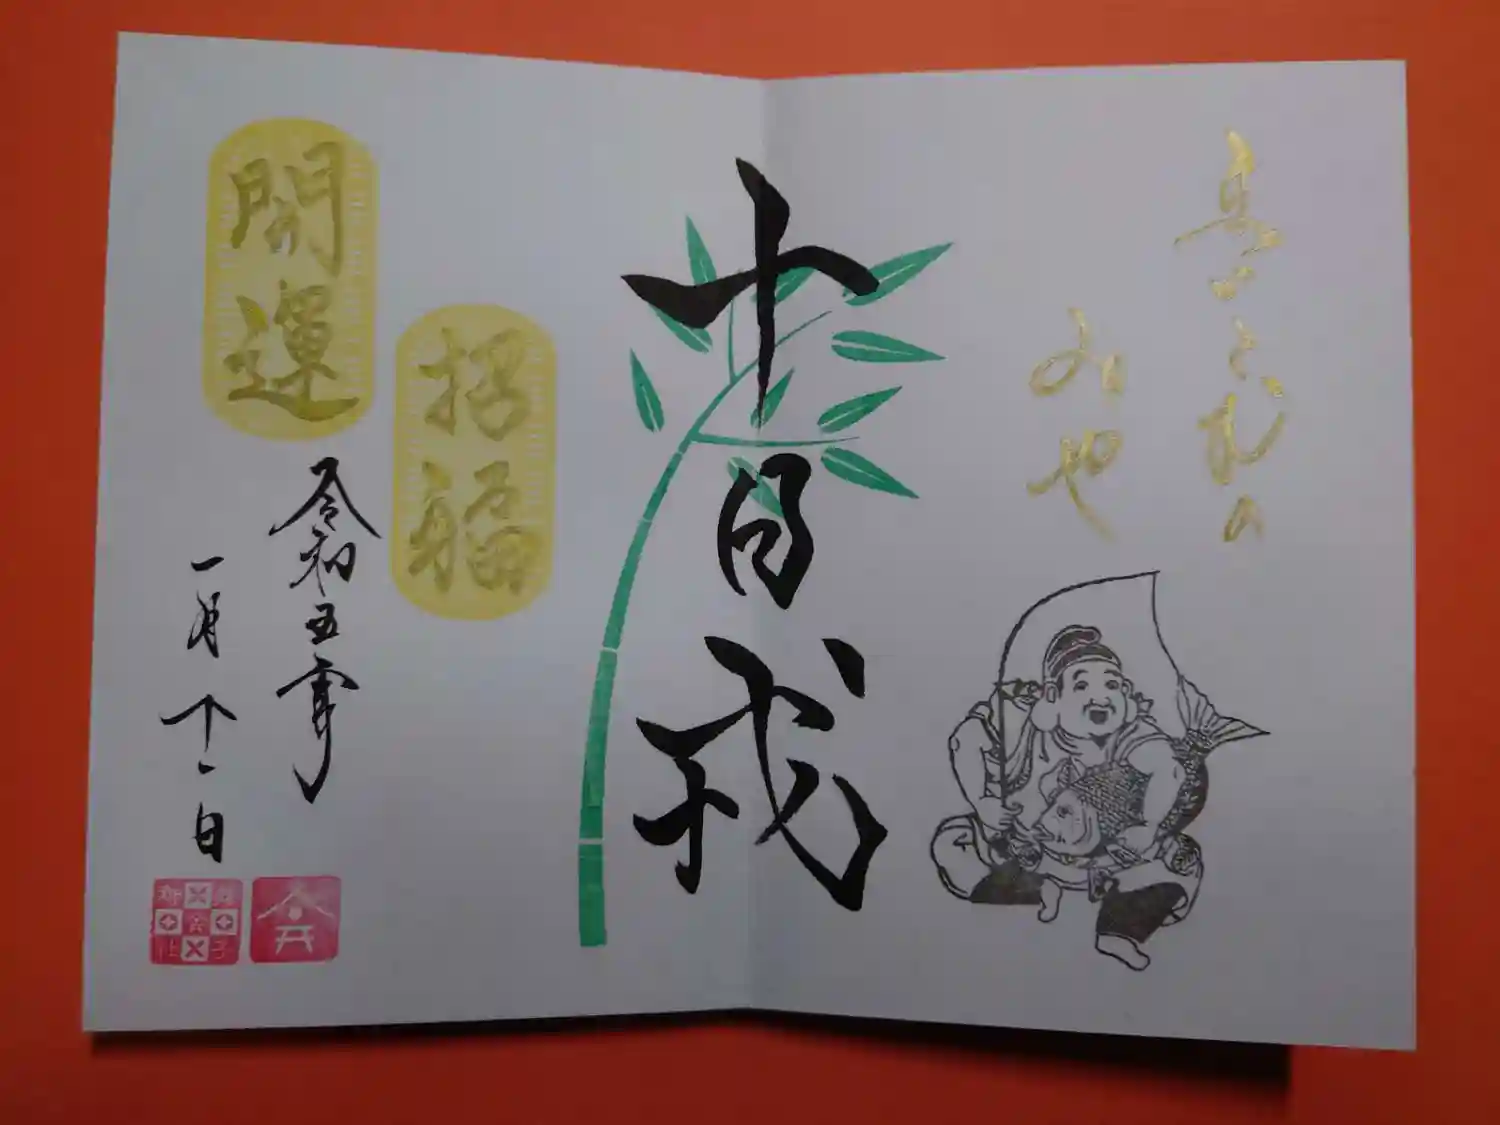 みや
十日戎
招福
開運
令和五年
一月十一日